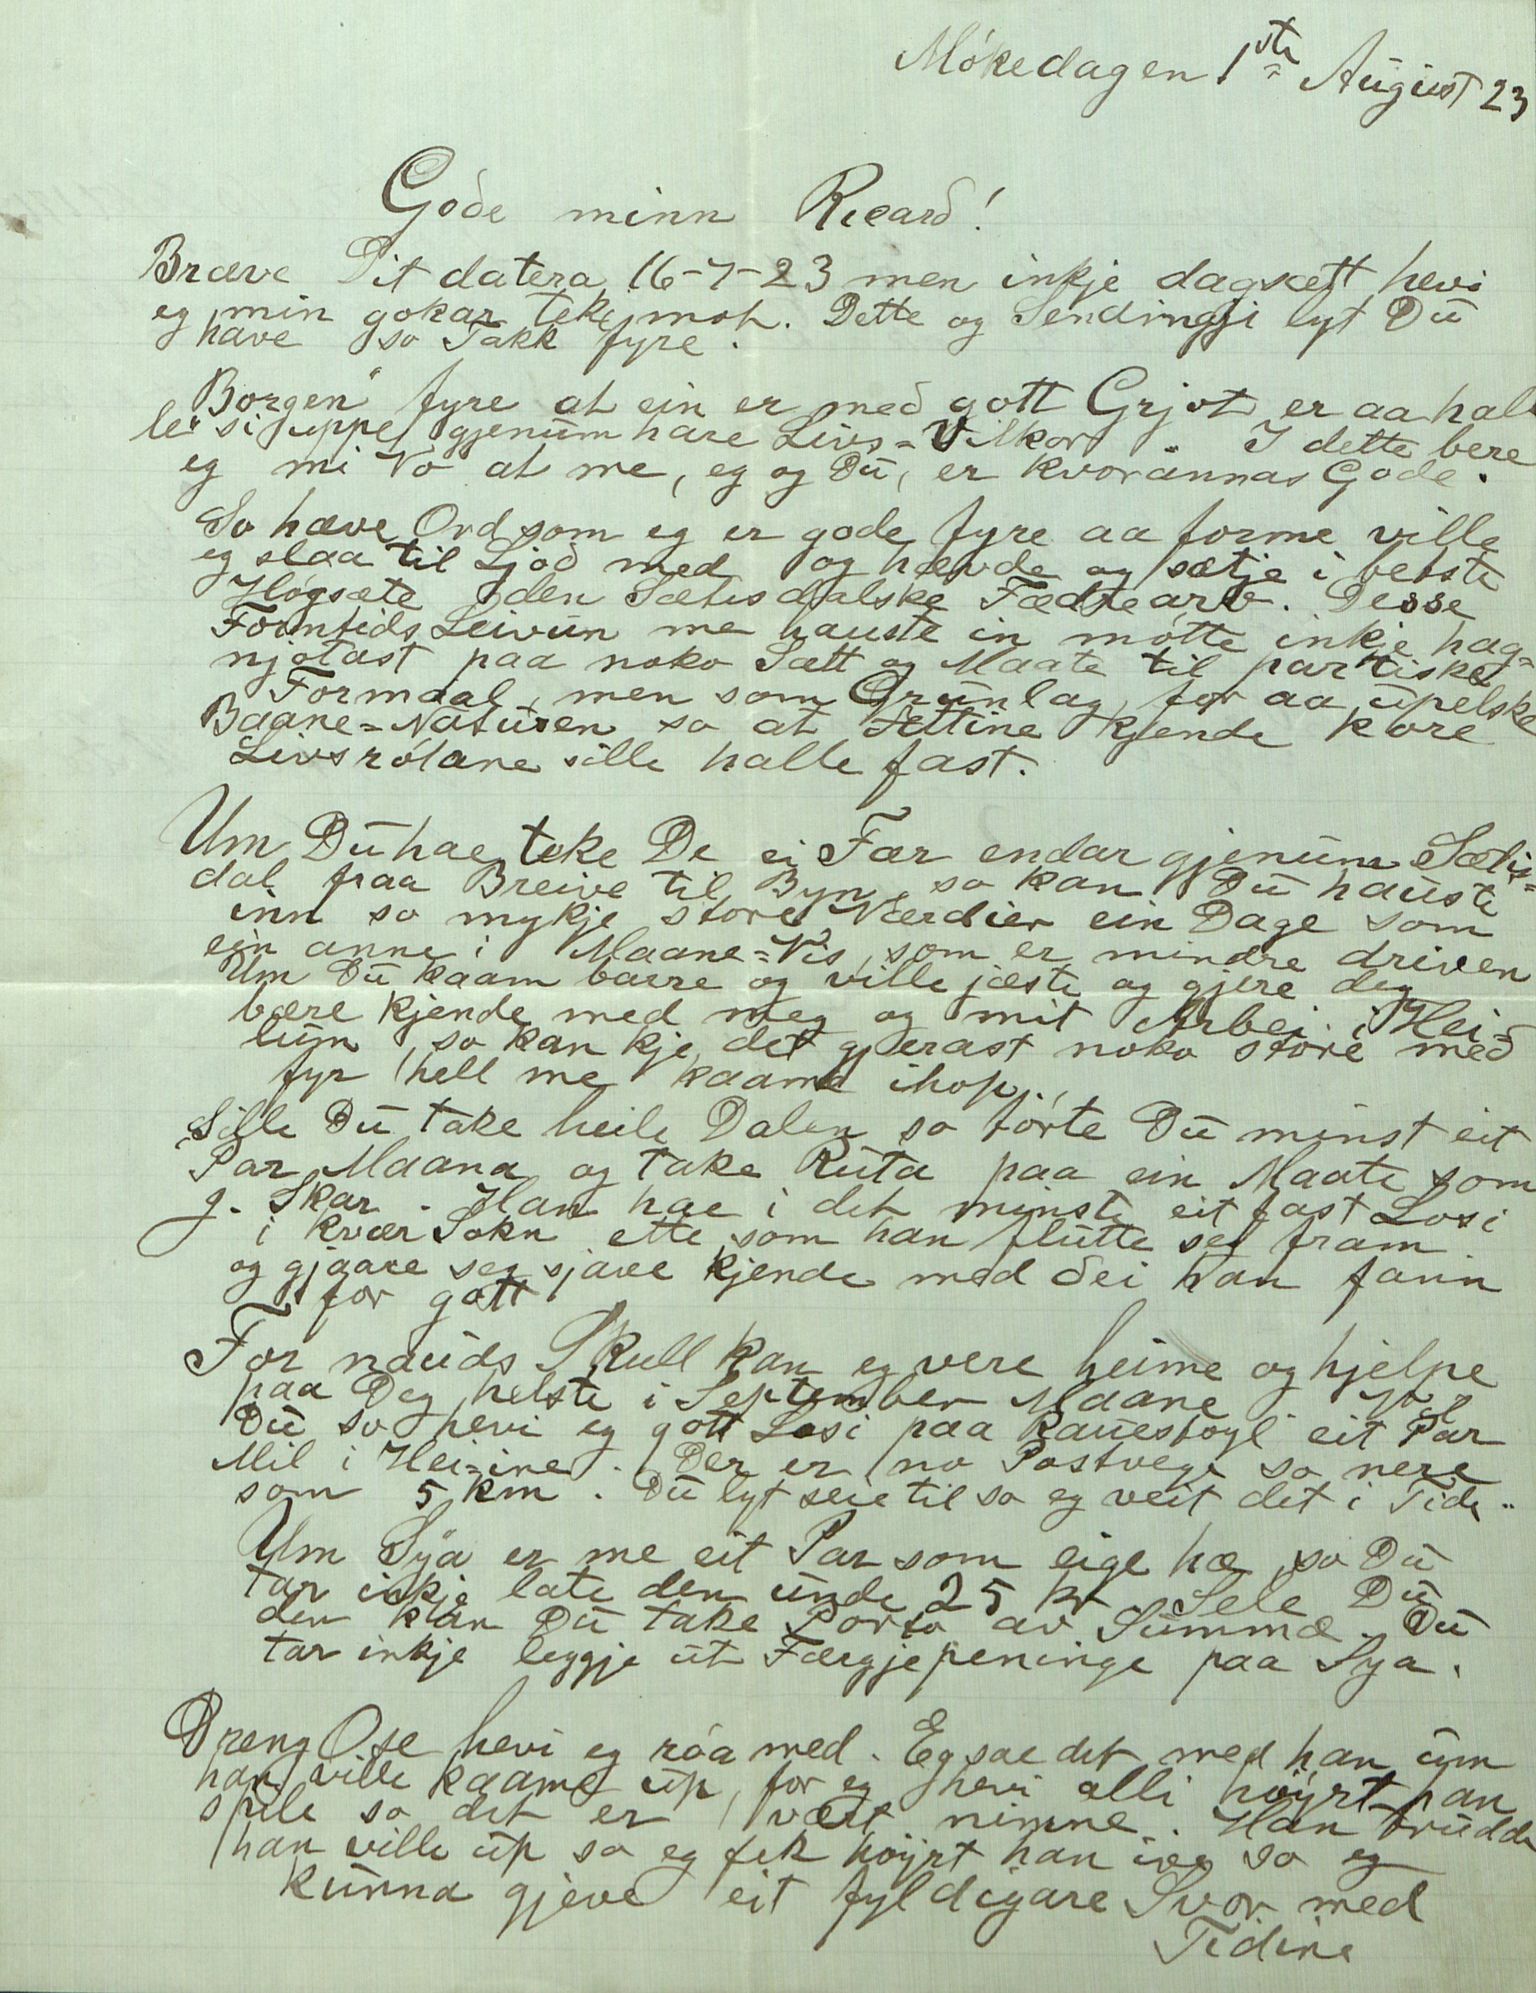 Mókedagen 1ste August 23
Gode minn Ricard!
Bræve Dit datera 16-7-23 men inkje dagsett hevi
eg min gokar teke mot. Dette og Sendinggji lyt Du
have so Takk fyre.
"Borgen" fyre at ein er med gott Grjot er aa hal
le si uppe gjenum hare Livs-Vilkor. I dette bere
eg mi Vo at me, eg og Du, er kvorannas Gode.
So hæve Ord som eg er gode fyre aa forme ville
eg slaa til Ljod med og hævde og sætje i betste
Högsæte den Sætisdalske Fædrearv. Desse
Forntids Leivun me hauste in mótte inkje hag-
njotast paa noko Sætt og Maate til partiske
Formaal, men som Grunlag for aa upelske
Baane-Naturen so at Ættine kjende kore
Livsrótane sille halle fast.
Um Du hae teke De ei Fær endar gjenum Sætis-
dal fraa Breive til Byn, so kan Du hauste
inn so mykje store Værdier ein Dage som
ein anne i Maane-Vis, som er mindre driven
Um Du kaam barre og ville jæste og gjere deg
bære kjende med meg og mit Arbei i Hei-
lun, so kan kje det gjerast noko store med
fyr hell me kaame ihop.
Sille Du take heile Dalen so tórte Du minst eit
Par Maana og take Ruta paa ein Maate som
J. Skar. Han hae i det minste eit fast Losi
i kvær Sokn ette som han flutte seg fram
og gjaare seg sjave kjende med dei han fann
for gott
For nauds Skull kan eg vere heime og hjelpe
paa Deg helste i September Maane. Vil
Du so hevi eg gott Losi paa Rauestoyl eit Par
Mil i Hei-ine. Der er no Postvege so nere
som 5 km. Du lyt seie til so eg veit det i Tide..
Um Sya er me eit Par som eige hæ, so Du
tar inkje late den unde 25 kr Sele Du
den kan Du take Porto av Summæ. Du
tar inkje leggje ut Færgjepeninge paa Sya.
Dreng Ose hevi eg róa med. Eg sae det med han um
han ville kaame up, for eg hevi alli höyrt han
spile so det er vært nimne. Han trudde
han ville up so eg fek höyrt han ive so eg
kunna gjeve eit fyldigare Svar med
Tidine